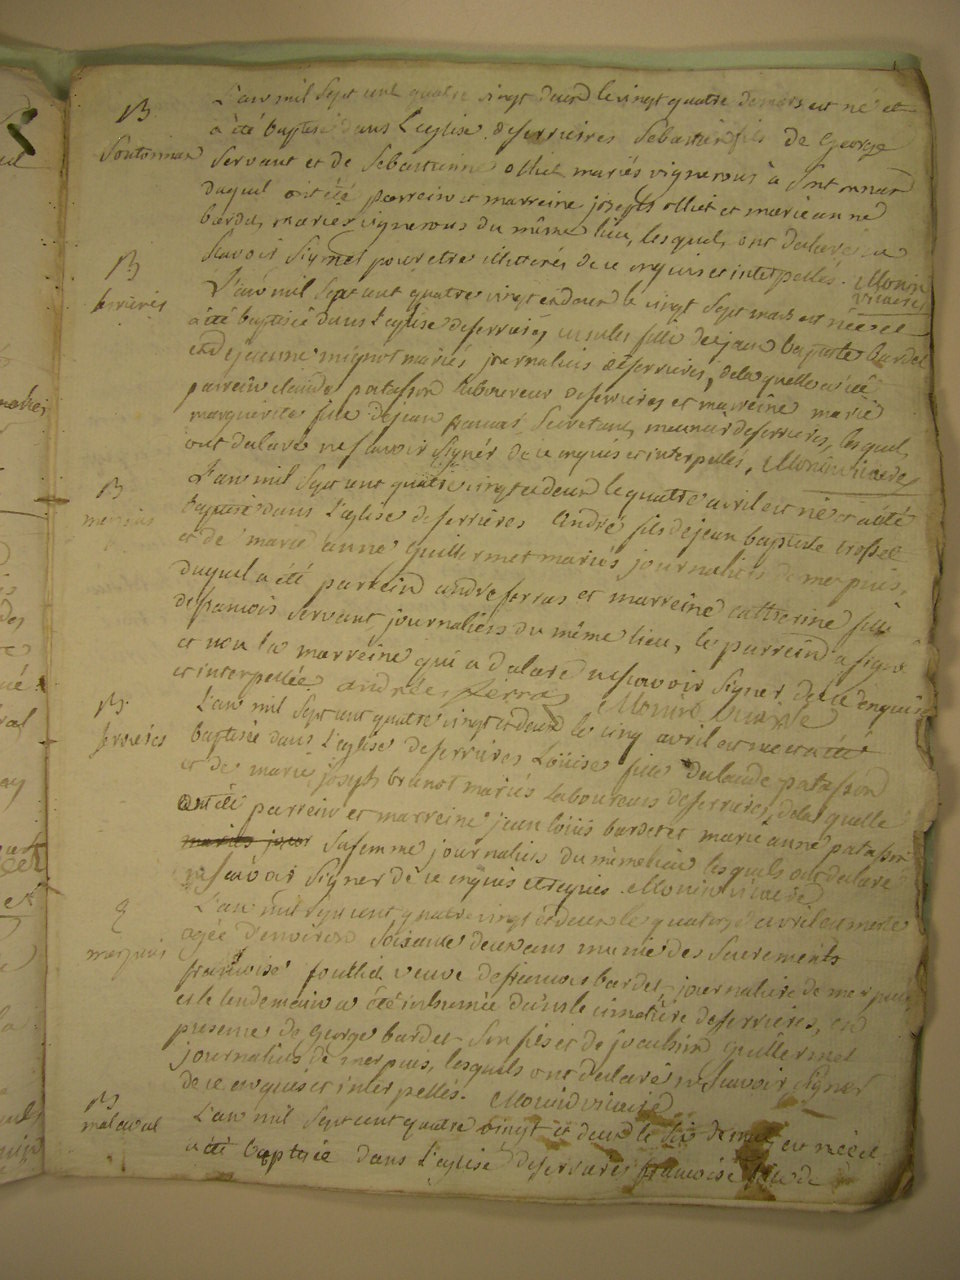 B
Sontonnax
L'an mil sept cent quatre vingt deux le vingt quatre de mars est né et
a été baptisé dans L'eglise deferrieres Sebastien fils de George
Servant et de Sebastienne olliet mariés vignerons à Sontonnax
duquel ont été parrein et marreine joseph olliet et marie anne
bardet, mariés vignerons du même lieu, lesquels ont declaré ne
scavoir signer pour etre illitérés de ce enquis et interpellés. Monin
vicaire
B
ferrieres
L'an mil sept cent quatre vingt et deux le vingt sept mars est née et
a été baptisée dans l'eglise deferrieres, ursule fille de jean baptiste bardet
et de jeanne mignot mariés journaliers deferrieres, de laquelle a été
parrein claude patasson laboureur deferrieres et marreine marie
marguerite fille de jean francois Secretant, meunier deferrieres, lesquels
ont declaré ne scavoir signér de ce enquis et interpellés, Monin vicaire
B
merpuis
L'an mil sept cent quatre vingt et deux le quatre avril est né et a été
baptisé dans L'eglise deferrieres andré fils de jean baptiste trosset
et de marie anne guillermet mariés journaliers de merpuis,
duquel a été parrein andre ferras et marreine catherine fille
de francois Servant journaliers du même lieu, le parrein a signé
et non la marreine qui a declaré ne scavoir signer de ce enquise
et interpellée andrée ferras Monin vicaire
B
ferrieres
L'an mil sept cent quatre vingt et deux le cinq avril est née et a été
baptisée dans L'eglise deferrieres Loüise fille de claude patasson
et de marie joseph brunot mariés Laboureurs deferrieres, de laquelle
ont été parrein et marreine jean loüis bardet et marie anne patasson
mariés jour sa femme journaliers du même lieu lesquels ont declaré
ne scavoir signer de ce enquis et requis. Monin vicaire
merpuis
L'an mil sept cent quatre vingt et deux le quatorze d'avril est morte
agée d'environ soixante deux ans munie des Sacrements
francoise veuve defrancois bardet journaliere de merpuis
et le lendemain a été inhumée dans le cimetiére deferrieres, en
presence de George bardet Son fils et de guillermet
journaliers de merpuis, lesquels ont declaré ne scavoir signer
de ce enquis et interpellés. Monin vicaire
B
malaval
L'an mil sept cent quatre vingt et deux le six de mai est née et
a été baptisée dans L'eglise deferrieres francoise de